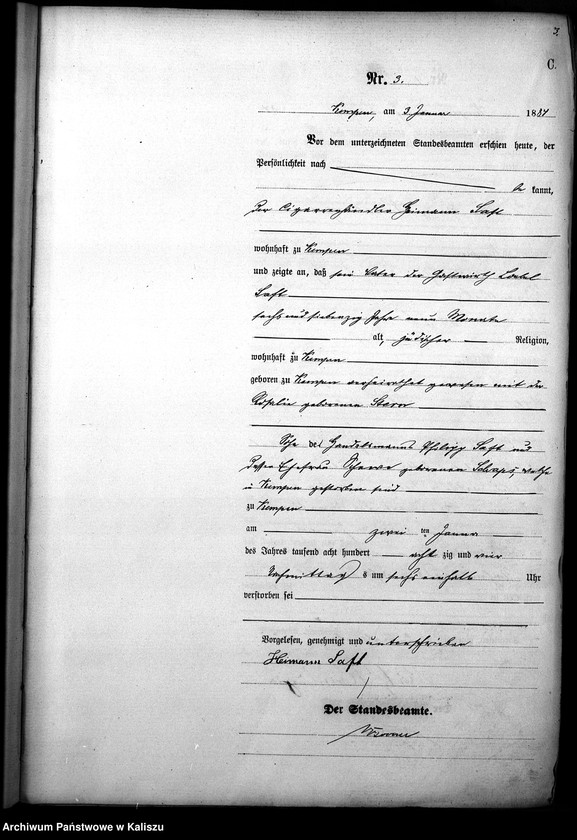 C.
Nr. 3.
Kempen, am 3 Januar 1884
Vor dem unterzeichneten Standesbeamten erschien heute, der
Persönlichkeit nach
be kannt,
der Cigarrenhändler Heimann Saft
wohnhaft zu Kempen
und zeigte an, daß sein Vater der Gastwirth Loebel
Saft
sechs und siebenzig Jahr neun Monate
alt, jüdischer Religion,
wohnhaft zu Kempen
geboren zu Kempen verheirathet gewesen mit der
Rosalie geborenen Stern
Sohn des Handelsmanns Philipp Saft und
dessen Ehefrau geborenen welche
in Kempen gestorben sind
zu Kempen
am zwei ten Januar
des Jahres tausend acht hundert acht zig und vier
Nachmittag s um sechs einhalb Uhr
verstorben sei
Vorgelesen, genehmigt und unterschrieben
Heimann Saft
Der Standesbeamte.
Archiwum Państwowe w Kaliszu